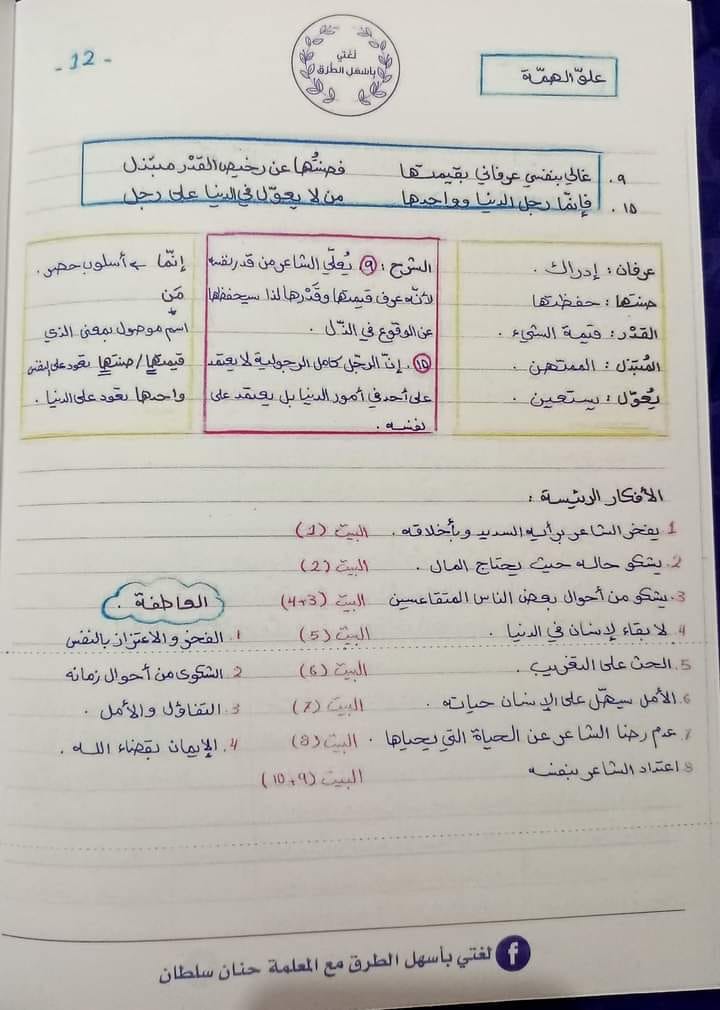 - 12 -
لغتي
بأسهل الطرق
علوّ الهمّة
٩. غالي بنفسي عرفاني بقيمتها فصنتُها عن رخيص القدْر مبتذل
١٥. فإنّما رجل الدنيا وواحدها من لا يعوّل في الدنيا على رجل
عرفان: إدراك.
صنتها: حفظتها
القدْر: قيمة الشيء.
المُبتذل: الممتهن.
يُعوّل: يستعين.
الشرح: (٩) يُعلّي الشاعر من قدر نفسه
لأنّه عرف قيمتها وقَدْرها لذا سيحفظها
عن الوقوع في الذّل.
(١٥). إنّ الرجل كامل الرجولية لا يعتمد
على أحد في أمور الدنيا بل يعتمد على
نفسه.
إنّما ← أسلوب حصر.
مَن
اسم موصول بمعنى الذي
قيمتها/صنتها تعود على النفس
واحدها تعود على الدنيا.
الأفكار الرئيسة:
1 يفتخر الشاعر برأيه السديد وبأخلاقه. البيت (1)
2. يشكو حاله حيث يحتاج المال. البيت (2)
3. يشكو من أحوال بعض الناس المتقاعسين البيت (3+4)
4. لا بقاء لإنسان في الدنيا. البيت (5)
5. الحث على التغريب. البيت (6)
6. الأمل سيهّل على الإنسان حياته. البيت (7)
7. عدم رضا الشاعر عن الحياة التي يحياها. البيت (8)
8 اعتداد الشاعر بنفسه البيت (9+10)
العاطفة.
1. الفخر والاعتزاز بالنفس
2. الشكوى من أحوال زمانه
3. التفاؤل والأمل.
4. الإيمان بقضاء الله.
f لغتي بأسهل الطرق مع المعلمة حنان سلطان